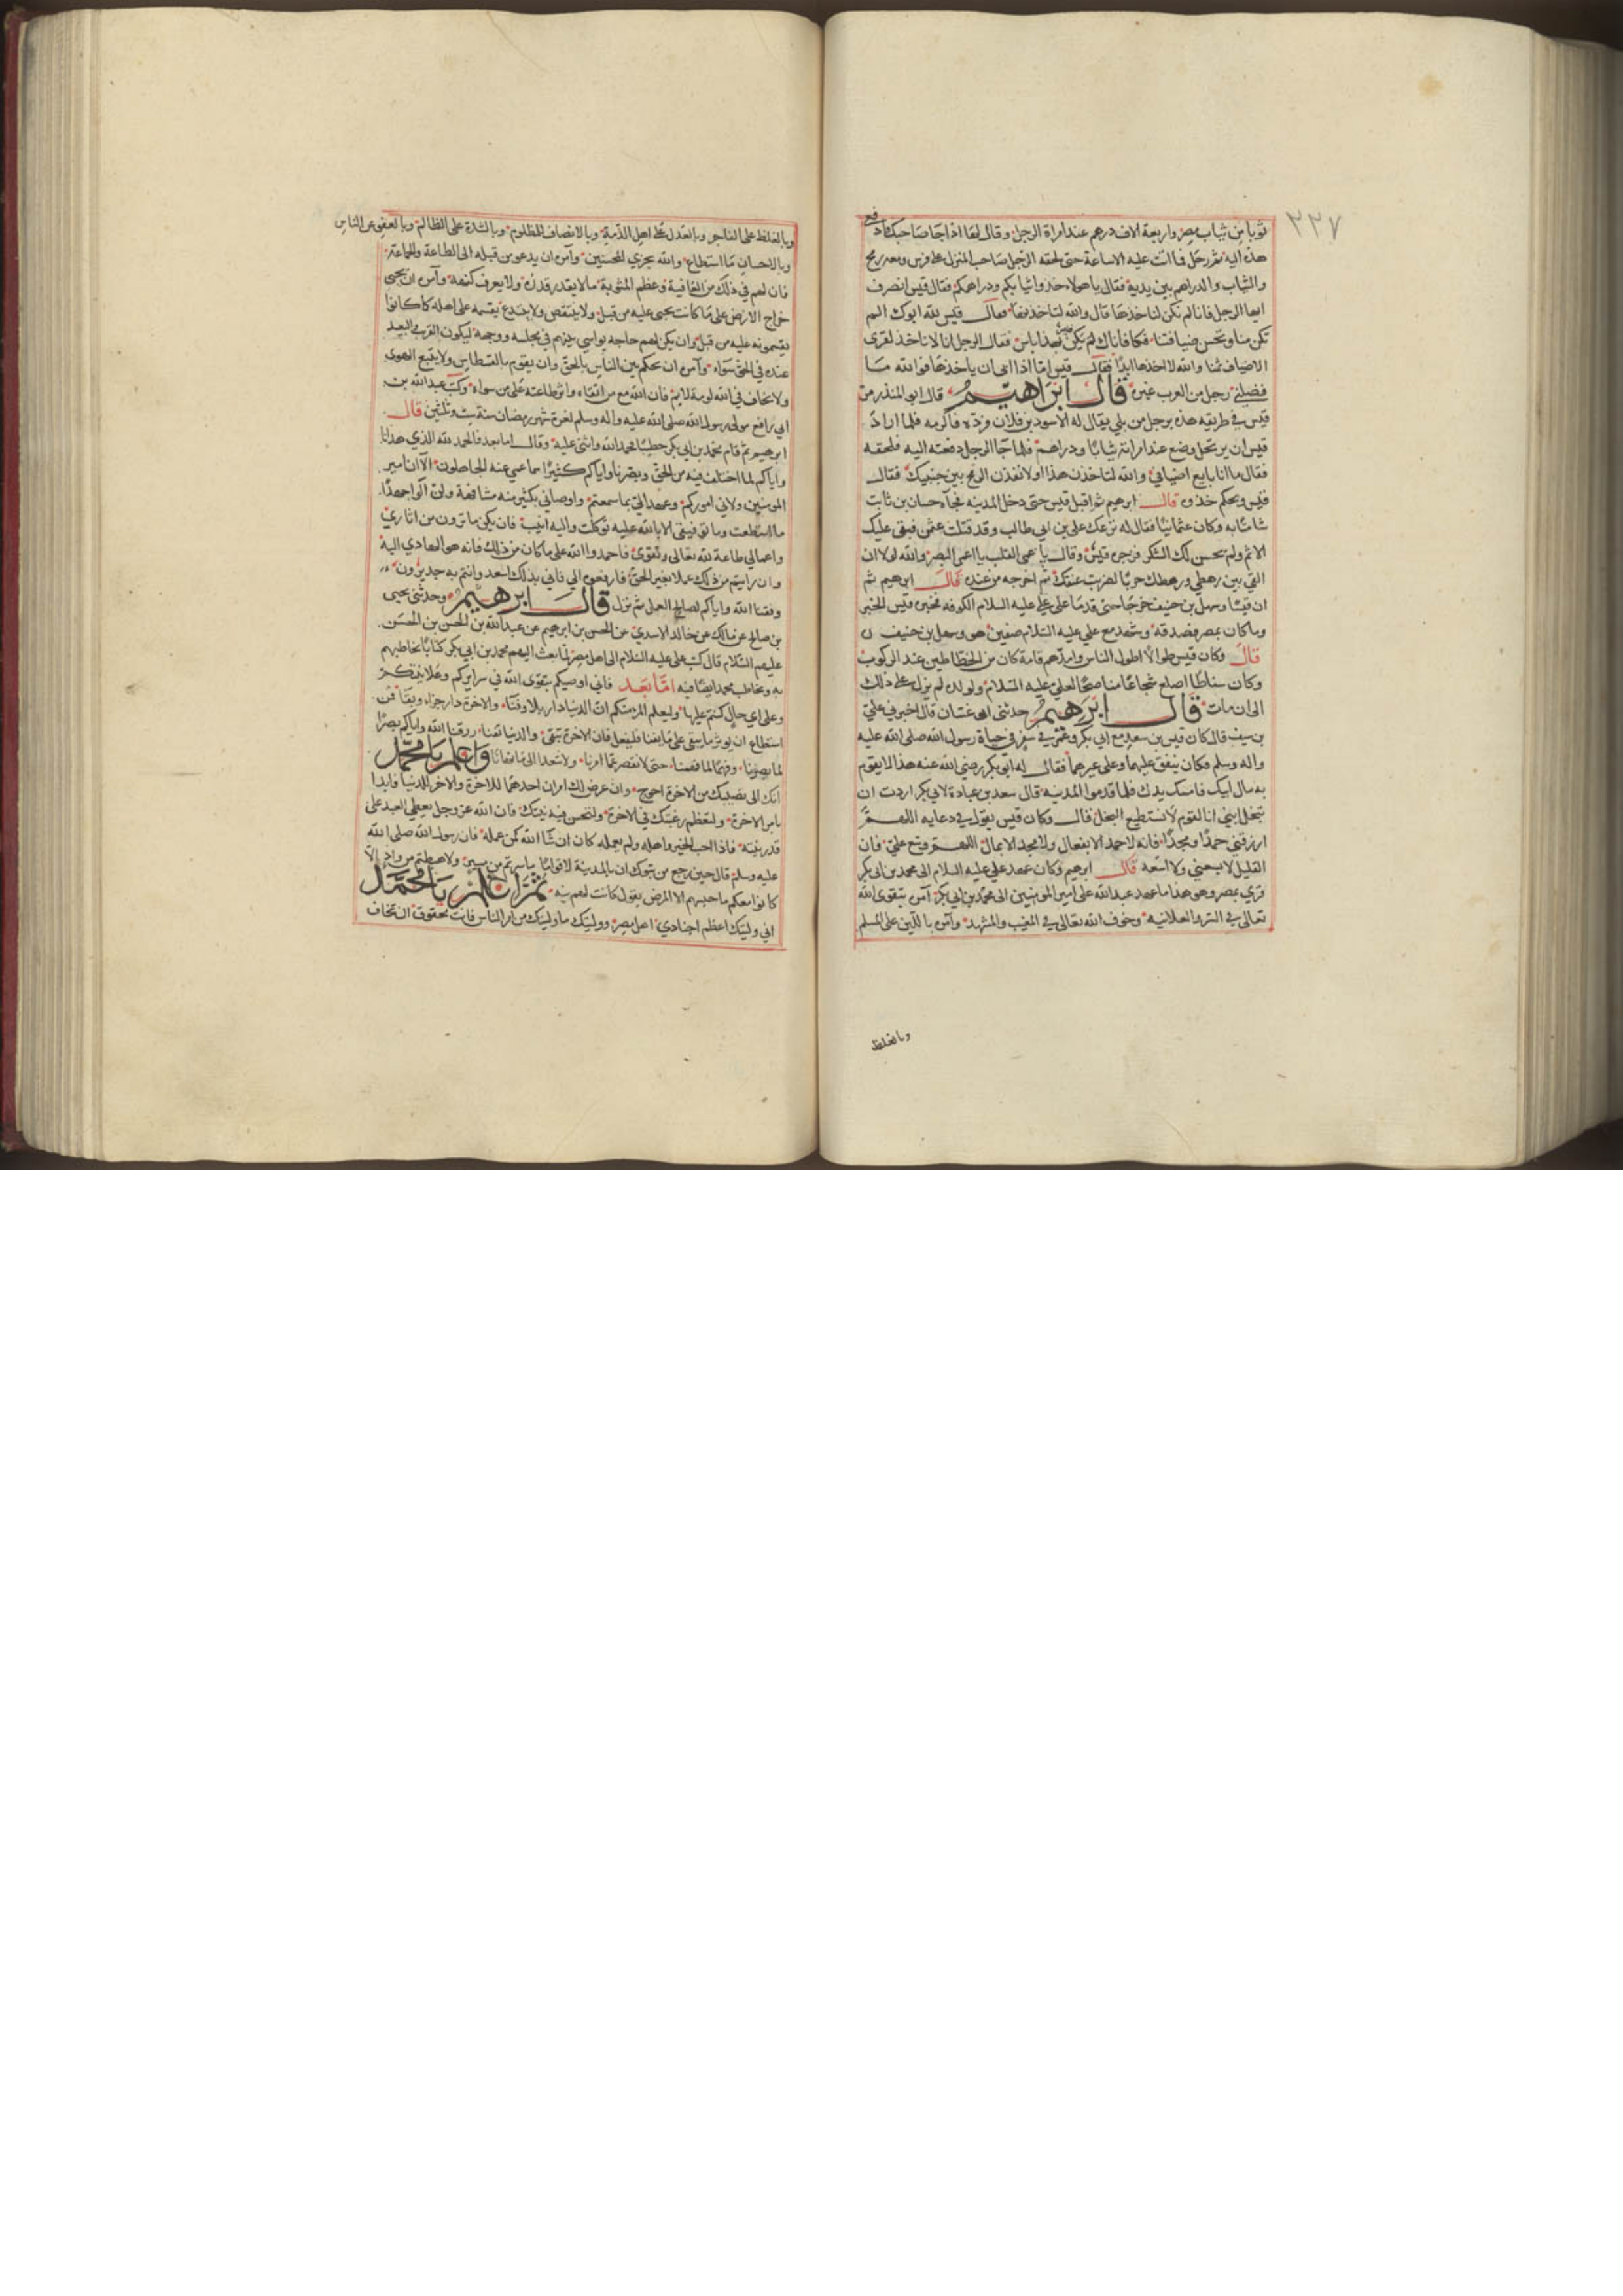 ٢٢٧
ثوبا من ثياب مصر واربعة الاف درهم عند امراة الرجل وقال لها اذا جا صاحبك فادفعي
هذه اليه ثم رحل فما اتت عليه الا ساعة حتى لحقه الرجل صاحب المنزل على فرس ومعه رمح
والثياب والدراهم بين يديه فقال يا هولاء خذوا ثيابكم ودراهمكم فقال قيس انصرف
ايها الرجل فانا لم نكن لناخذها قال والله لتاخذنها فقال قيس لله ابوك الم
تكن منا وتحسن ضيافتنا فكافاناك فليس بهذا باس فقال الرجل انا لا ناخذ لقرى
الاضياف ثمنا والله لا اخذها ابدا فقال قيس اما اذا ابى ان ياخذها فوالله ما
فضلني رجل من العرب غيره قال ابراهيم قال ابو المنذر مر
قيس في طريقه هذه برجل من بلي يقال له الاسود بن فلان فاكرمه فلما اراد
قيس ان يرتحل وضع عند امراته ثيابا ودراهم فلما جا الرجل دفعته اليه فلحقه
فقال ما انا بايع اضيافي والله لتاخذن هذا او لانفذن الرمح بين جنبيك فقال
قيس ويحكم خذوه قال ابرهيم ثم اقبل قيس حتى دخل المدينه فجآه حسان بن ثابت
شامتا به وكان عثمانيا فقال له نزعك علي بن ابي طالب وقد قتلت عثمن فبقى عليك
الاثم ولم يحسن لك الشكر فزجره قيس وقال يا اعمى القلب يا اعمى البصر والله لولا ان
القي بين رهطي ورهطك حربا لضربت عنقك ثم اخرجه من عنده قال ابرهيم ثم
ان قيسا وسهل بن حنيف خرجا حتى قدما على علي عليه السلام الكوفه فخبره قيس الخبر
وما كان بمصر فصدقه وشهد مع علي عليه السلام صفين هو وسهل بن حنيف
قال وكان قيس طوالا اطول الناس وامدهم قامة
وكان سناطا اصلع شجاعا مناصحا لعلي عليه السلام ولولده لم يزل على ذلك
الى ان مات قال ابرهيم حدثني ابو غسان قال اخبرني علي
بن سيف قال كان قيس بن سعد مع ابي بكر وعمر في سفر في حياة رسول الله صلى الله عليه
واله وسلم فكان ينفق عليهما وعلى غيرهما فقال له ابو بكر رضي الله عنه هذا لا يقوم
به مال ابيك فامسك يدك فلما قدموا المدينه قال سعد بن عبادة لابي بكر اردت ان
تبخل ابني انا لقوم لا نستطيع البخل قال وكان قيس يقول في دعايه اللهم
ارزقني حمدا ومجدا فانه لا حمد الا بفعال ولا مجد الا بمال اللهم وسع علي فان
القليل لا يسعني ولا اسعه قال ابرهيم وكان عهد علي عليه السلام الى محمد بن ابي بكر
قرئ بمصر وهو هذا ما عهد عبد الله علي امير المومنين الى محمد بن ابي بكر امره بتقوى الله
تعالى في السر والعلانيه وخوف الله تعالى في المغيب والمشهد وامره باللين على المسلم
وبالغلظ
وبالغلظ على الفاجر وبالعدل على اهل الذمة وبالانصاف للمظلوم وبالشدة على الظالم وبالعفو عن الناس
وبالاحسان ما استطاع والله يجزي المحسنين وامره ان يدعو من قبله الى الطاعة والجماعة
فان لهم في ذلك من العافية وعظم المثوبة ما لا يقدر قدره ولا يعرف كنهه وامره ان يجبي
خراج الارض على ما كانت تجبى عليه من قبل ولا ينتقص ولا يبتدع ثم يقسمه على اهله كما كانوا
يقسمونه عليه من قبل وان يكن لهم حاجه يواسي بينهم في مجلسه ووجهه ليكون القريب والبعيد
عنده في الحق سواء وامره ان يحكم بين الناس بالحق وان يقوم بالقسطاس ولا يتبع الهوى
ولا يخاف في الله لومة لايم فان الله مع من اتقاه واثر طاعته على من سواه وكتب عبد الله بن
ابي رافع مولى رسول الله صلى الله عليه واله وسلم لغرة شهر رمضان سنة ست وثلثين قال
ابرهيم ثم قام محمد بن ابي بكر خطيبا فحمد الله واثنى عليه وقال اما بعد فالحمد لله الذي هدانا
واياكم لما اختلف فيه من الحق وبصرنا واياكم كثيرا مما عمي عنه الجاهلون الا ان امير
المومنين ولاني اموركم وعهد الي بما سمعتم واوصاني بكثير منه مشافهة ولن الواكم جهدا
ما استطعت وما توفيقي الا بالله عليه توكلت واليه انيب فان يكن ما ترون من اثاري
واعمالي طاعة لله تعالى وتقوى فاحمدوا الله على ما كان من ذلك فانه هو الهادي اليه
وان رايتم من ذلك عملا بغير الحق فارفعوه الي فاني بذلك اسعد وانتم به جديرون
وفقنا الله واياكم لصالح العمل ثم نزل قال ابرهيم وحدثني يحيى
بن صالح عن مالك عن خالد الاسدي عن الحسن بن ابرهيم عن عبد الله بن الحسن بن الحسن
عليهم السلام قال كتب علي عليه السلام الى اهل مصر لما بعث اليهم محمد بن ابي بكر كتابا يخاطبهم
به ويخاطب محمدا ايضا فيه اما بعد فاني اوصيكم بتقوى الله في سرايركم وعلانيتكم
وعلى اي حال كنتم عليها وليعلم المرء منكم ان الدنيا دار بلا وفنا والاخرة دار جزاء وبقا فمن
استطاع ان يوثر ما يبقى على ما يفنا فليفعل فان الاخرة تبقى والدنيا تفنا رزقنا الله واياكم بصرا
لما بصرنا وفهما لما فهمنا حتى لا نقصر عما امرنا ولا نتعدا الى ما نهانا واعلم يا محمد
انك الى نصيبك من الاخرة احوج وان عرض لك امران احدهما للاخرة والاخر للدنيا فابدا
بامر الاخرة ولتعظم رغبتك في الاخرة ولتحسن فيه نيتك فان الله عز وجل يعطي العبد على
قدر نيته فاذا احب الخير واهله ولم يعمله كان ان شا الله كمن عمله فان رسول الله صلى الله
عليه وسلم قال حين رجع من تبوك ان بالمدينة لاقواما ما سرتم من مسير ولا هبطتم من واد الا
كانوا معكم ما حبسهم الا المرض يقول كانت لهم نيه ثم اعلم يا محمد
اني وليتك اعظم اجنادي اهل مصر ووليتك ما وليتك من امر الناس فانت محقوق ان تخاف